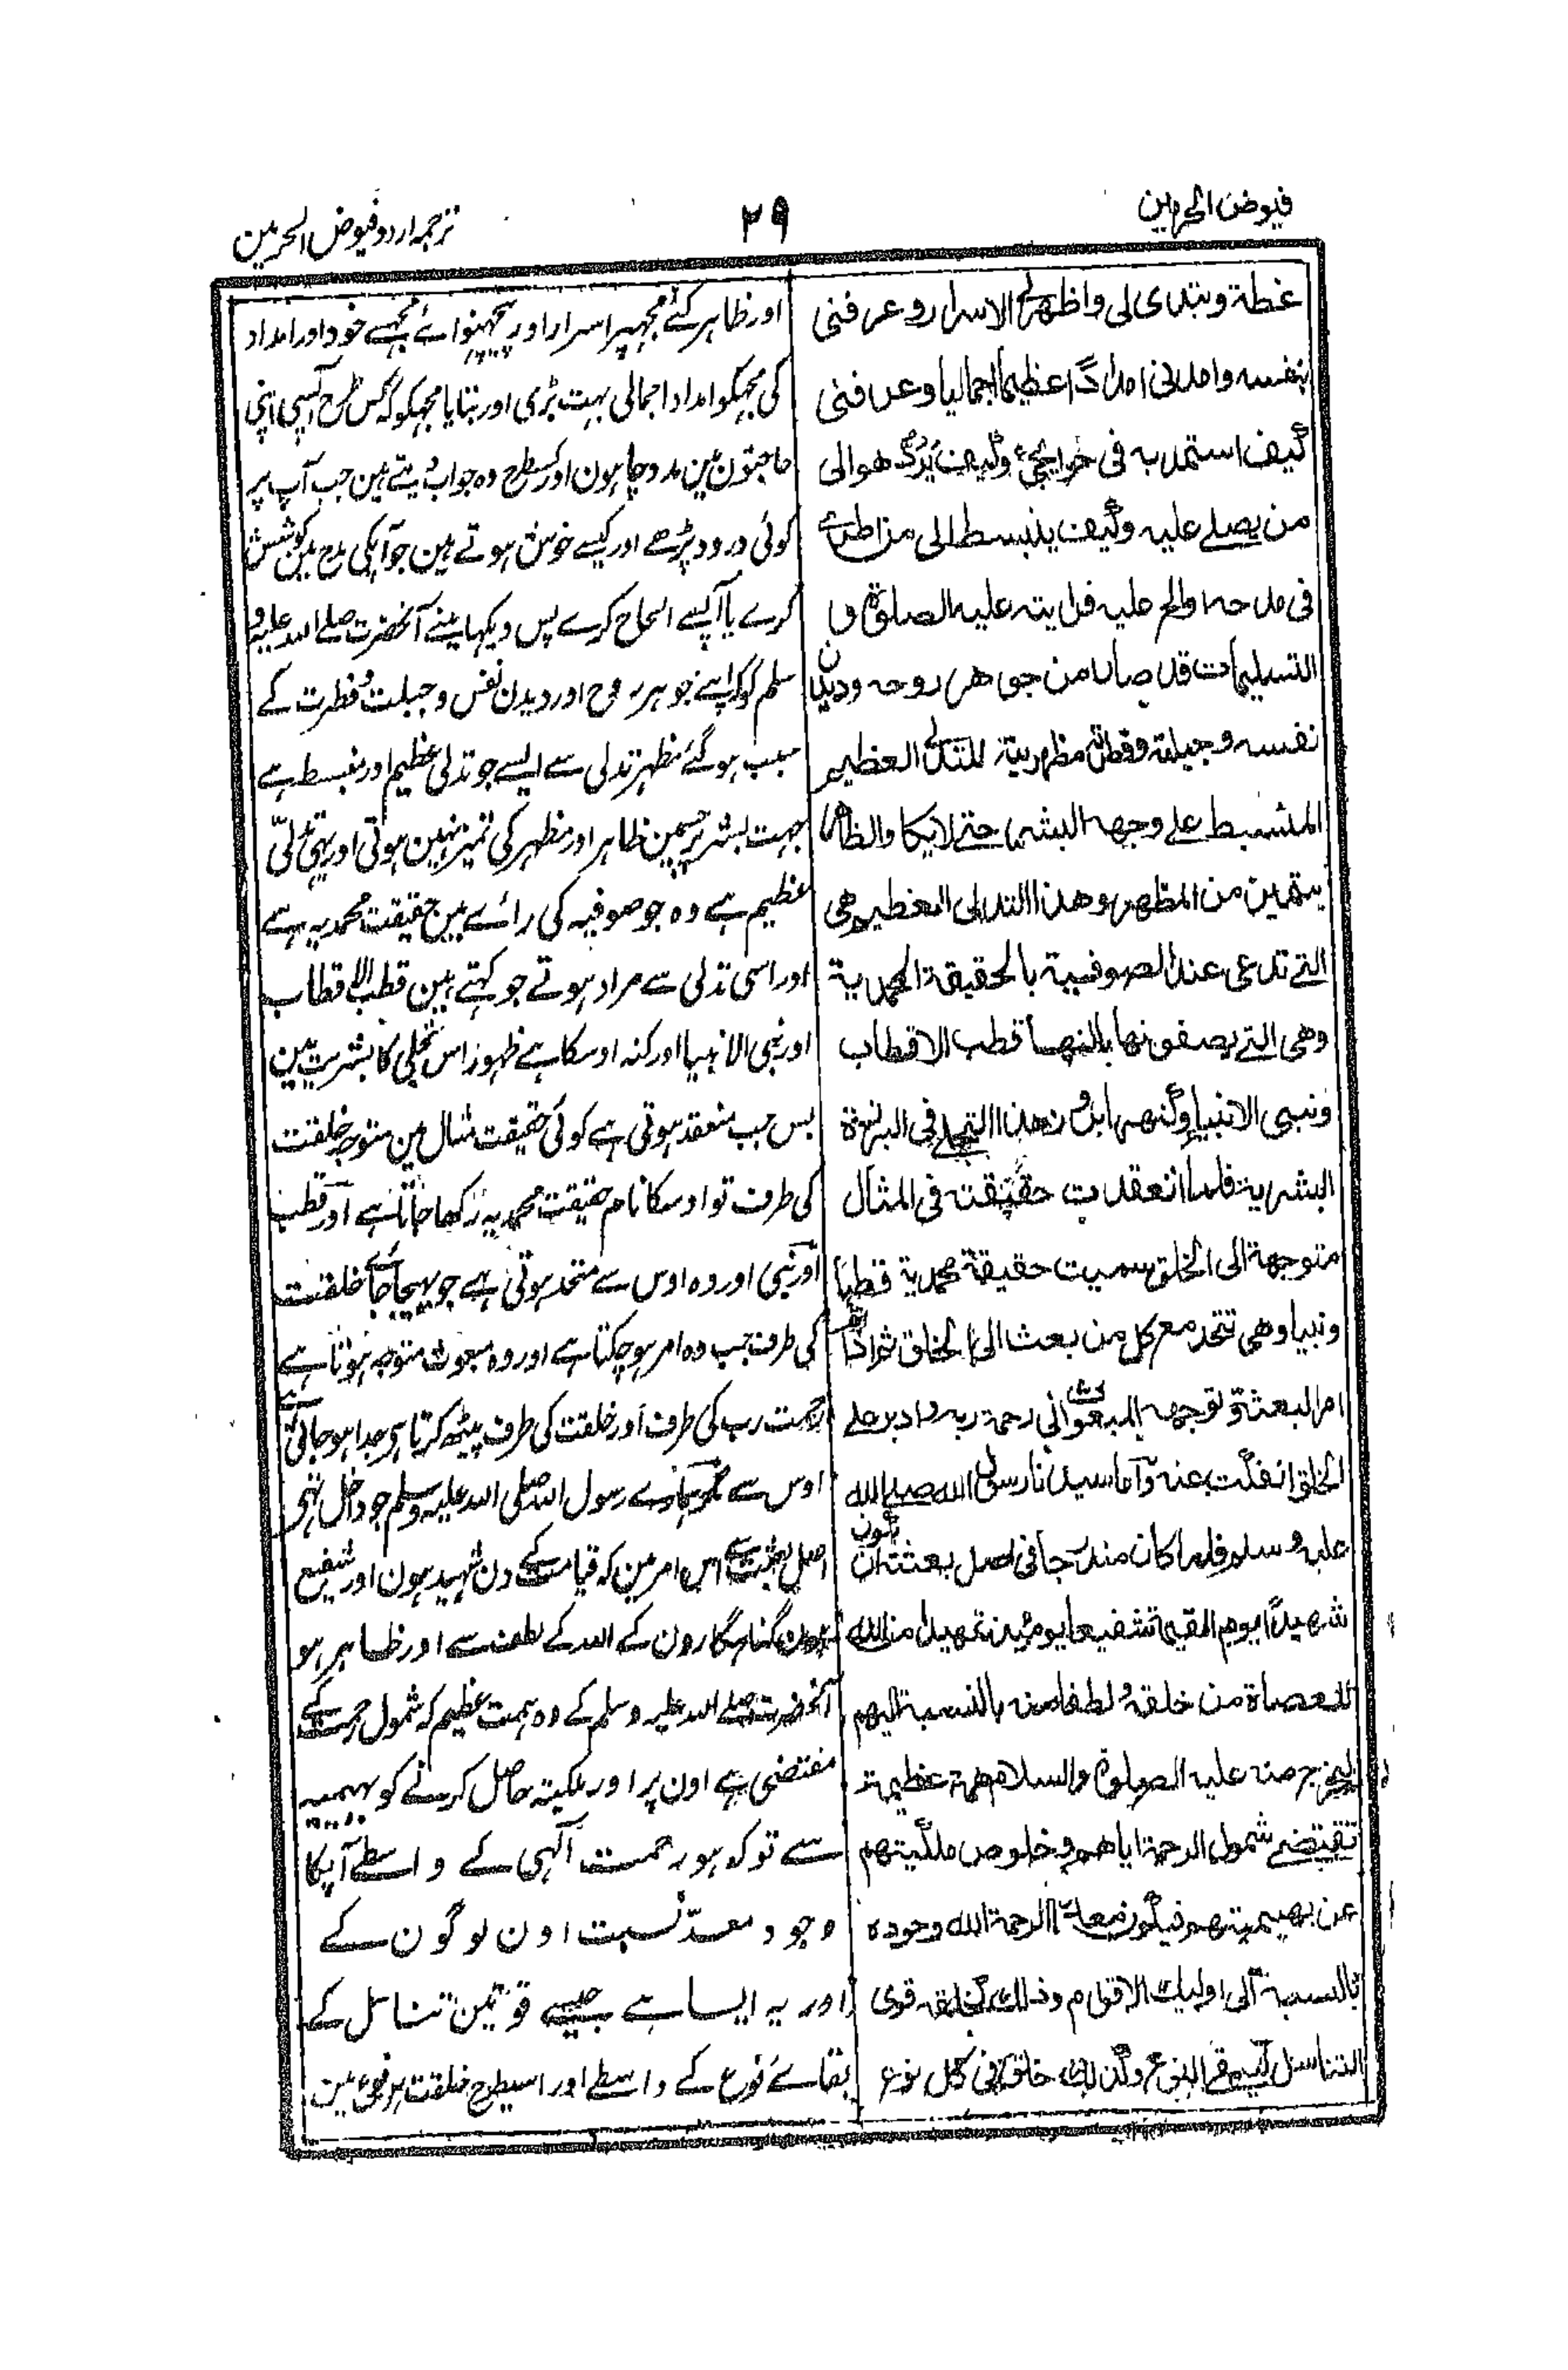 فیوض الحرمین
۲۹
ترجمہ اردو فیوض الحرمین
غطة وبتدى لى واظهر لى الاسرار وعرفنى
بنفسه وامدنى امدادًا عظيما اجماليا وعرفنى
كيف استمد به فى حوايجى وكيف يرد هو الى
من يصلے عليه وكيف ينبسط الى من اطرے
فى مدحه او الح عليه فرايته عليه الصلوة و
التسليمات قد صار من جوهر روحه وديدن
نفسه وجبلته وفطرته مظهرية للتدلى العظيم
المنبسط علے وجهه البشر حتے لايكاد الظاهر
يتميز من المظهر وهذا التدلى العظيم هى
التے تدعى عند الصوفية بالحقيقة المحمدية
وهى التے يصفونها بانها قطب الاقطاب
ونبى الانبياء وكنهها بروز هذا التجلے فى البرزة
البشرية فلما انعقدت حقيقة فى المثال
متوجهة الى الخلق سميت حقيقة محمدية قطبا
ونبيا وهى تتحد مع كل من بعث الى الخلق ثم اذا
امر البعثة وتوجه المبعوث الى رحمة ربه وادبر علے
الخلق انفكت عنه واما سيدنا رسول الله صلے الله
عليه وسلم فلما كان مندرجا فى اصل بعثته ان يكون
شهيدًا يوم القيمة شفيعا يومئذ تمهيدا من الله
للعصاة من خلقه ولطفا منه بالنسبة اليهم
ليخرج منه عليه الصلوة والسلام همة عظيمة
تقتضے شمول الرحمة اياهم وخلوص ملكيتهم
عن بهيميتهم فيكون معدا لرحمة الله وجوده
بالنسبة الى اوليك الاقوام وذلك كخلقه قوى
التناسل لبقاء النوع وكذلك خلق فى كل نوع
اور ظاہر کئے مجہپر اسرار اور پہچنوائے مجہے خود اور امداد
کی مجہکو امداد اجمالی بہت بڑی اور بتایا مجہکو کہ کس طرح آپسے اپنی
حاجتون مین مدد چاہون اور کسطرح وہ جواب دیتے ہین جب آپ پر
کوئی درود پڑھے اور کیسے خوش ہوتے ہین جو آپکی مدح مین کوشش
کرے یا آپسے الحاح کرے پس دیکہا مینے آنحضرت صلے اللہ علیہ و
سلم کو کہ اپنے جوہر روح اور دیدن نفس و جبلت و فطرت کے
سبب ہوگئے مظہر تدلی سے ایسے جو تدلی عظیم اور منبسط ہے
جہت بشر پر جسمین ظاہر اور مظہر کی تمیز نہین ہوتی اور یہی تدلّی
عظیم ہے وہ جو صوفیہ کی رائے مین حقیقت محمدیہ ہے
اور اسی تدلی سے مراد ہوتے جو کہتے ہین قطب الاقطاب
اور نبی الانبیا اور کنہ اوسکا ہے ظہور اس تجلی کا بشریت مین
بس جب منعقد ہوتی ہے کوئی حقیقت مثال مین متوجہ خلقت
کی طرف تو اوسکا نام حقیقت محمدیہ رکہا جاتا ہے اور قطب
اور نبی اور وہ اوس سے متحد ہوتی ہے جو بہیجا جائے خلقت
کی طرف جب وہ امر ہو چکتا ہے اور وہ مبعوث متوجہ ہوتا ہے
رحمت رب کی طرف اور خلقت کی طرف پیٹھ کرتا ہی جدا ہو جاتی ہے
اوس سے مگر ہمارے رسول اللہ صلی اللہ علیہ وسلم جو داخل تہی
اصل بعثت سے اس امر مین کہ قیامت کے دن شہید ہون اور شفیع
ہون گناہگارون کے اللہ کے لطف سے اور ظاہر ہو
آنحضرت صلے اللہ علیہ وسلم کے وہ ہمت عظیم کہ شمول رحمت کے
مقتضی ہے اون پر اور ملکیتہ حاصل کرنے کو بہیمیہ
سے تو کہ ہو رحمت الٓہی کے واسطے آپکا
وجود معدّ نسبت اون لوگون کے
اور یہ ایسا ہے جیسے قوتین تناسل کے
بقاے نوع کے واسطے اور اسیطرح خلقت ہر نوع مین